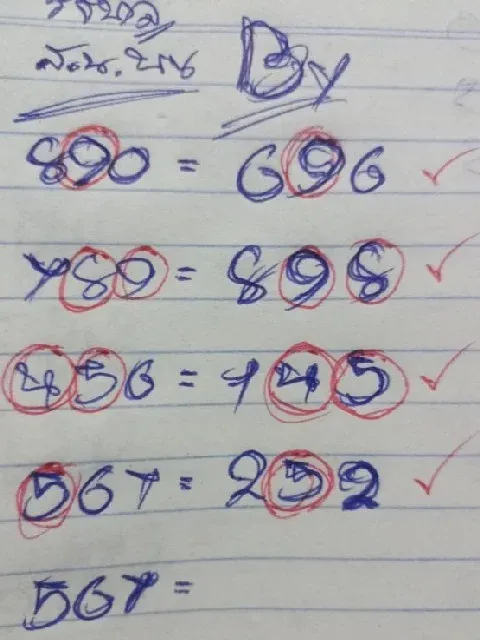 By
890 = 696
789 = 898
456 = 745
567 = 252
567 =